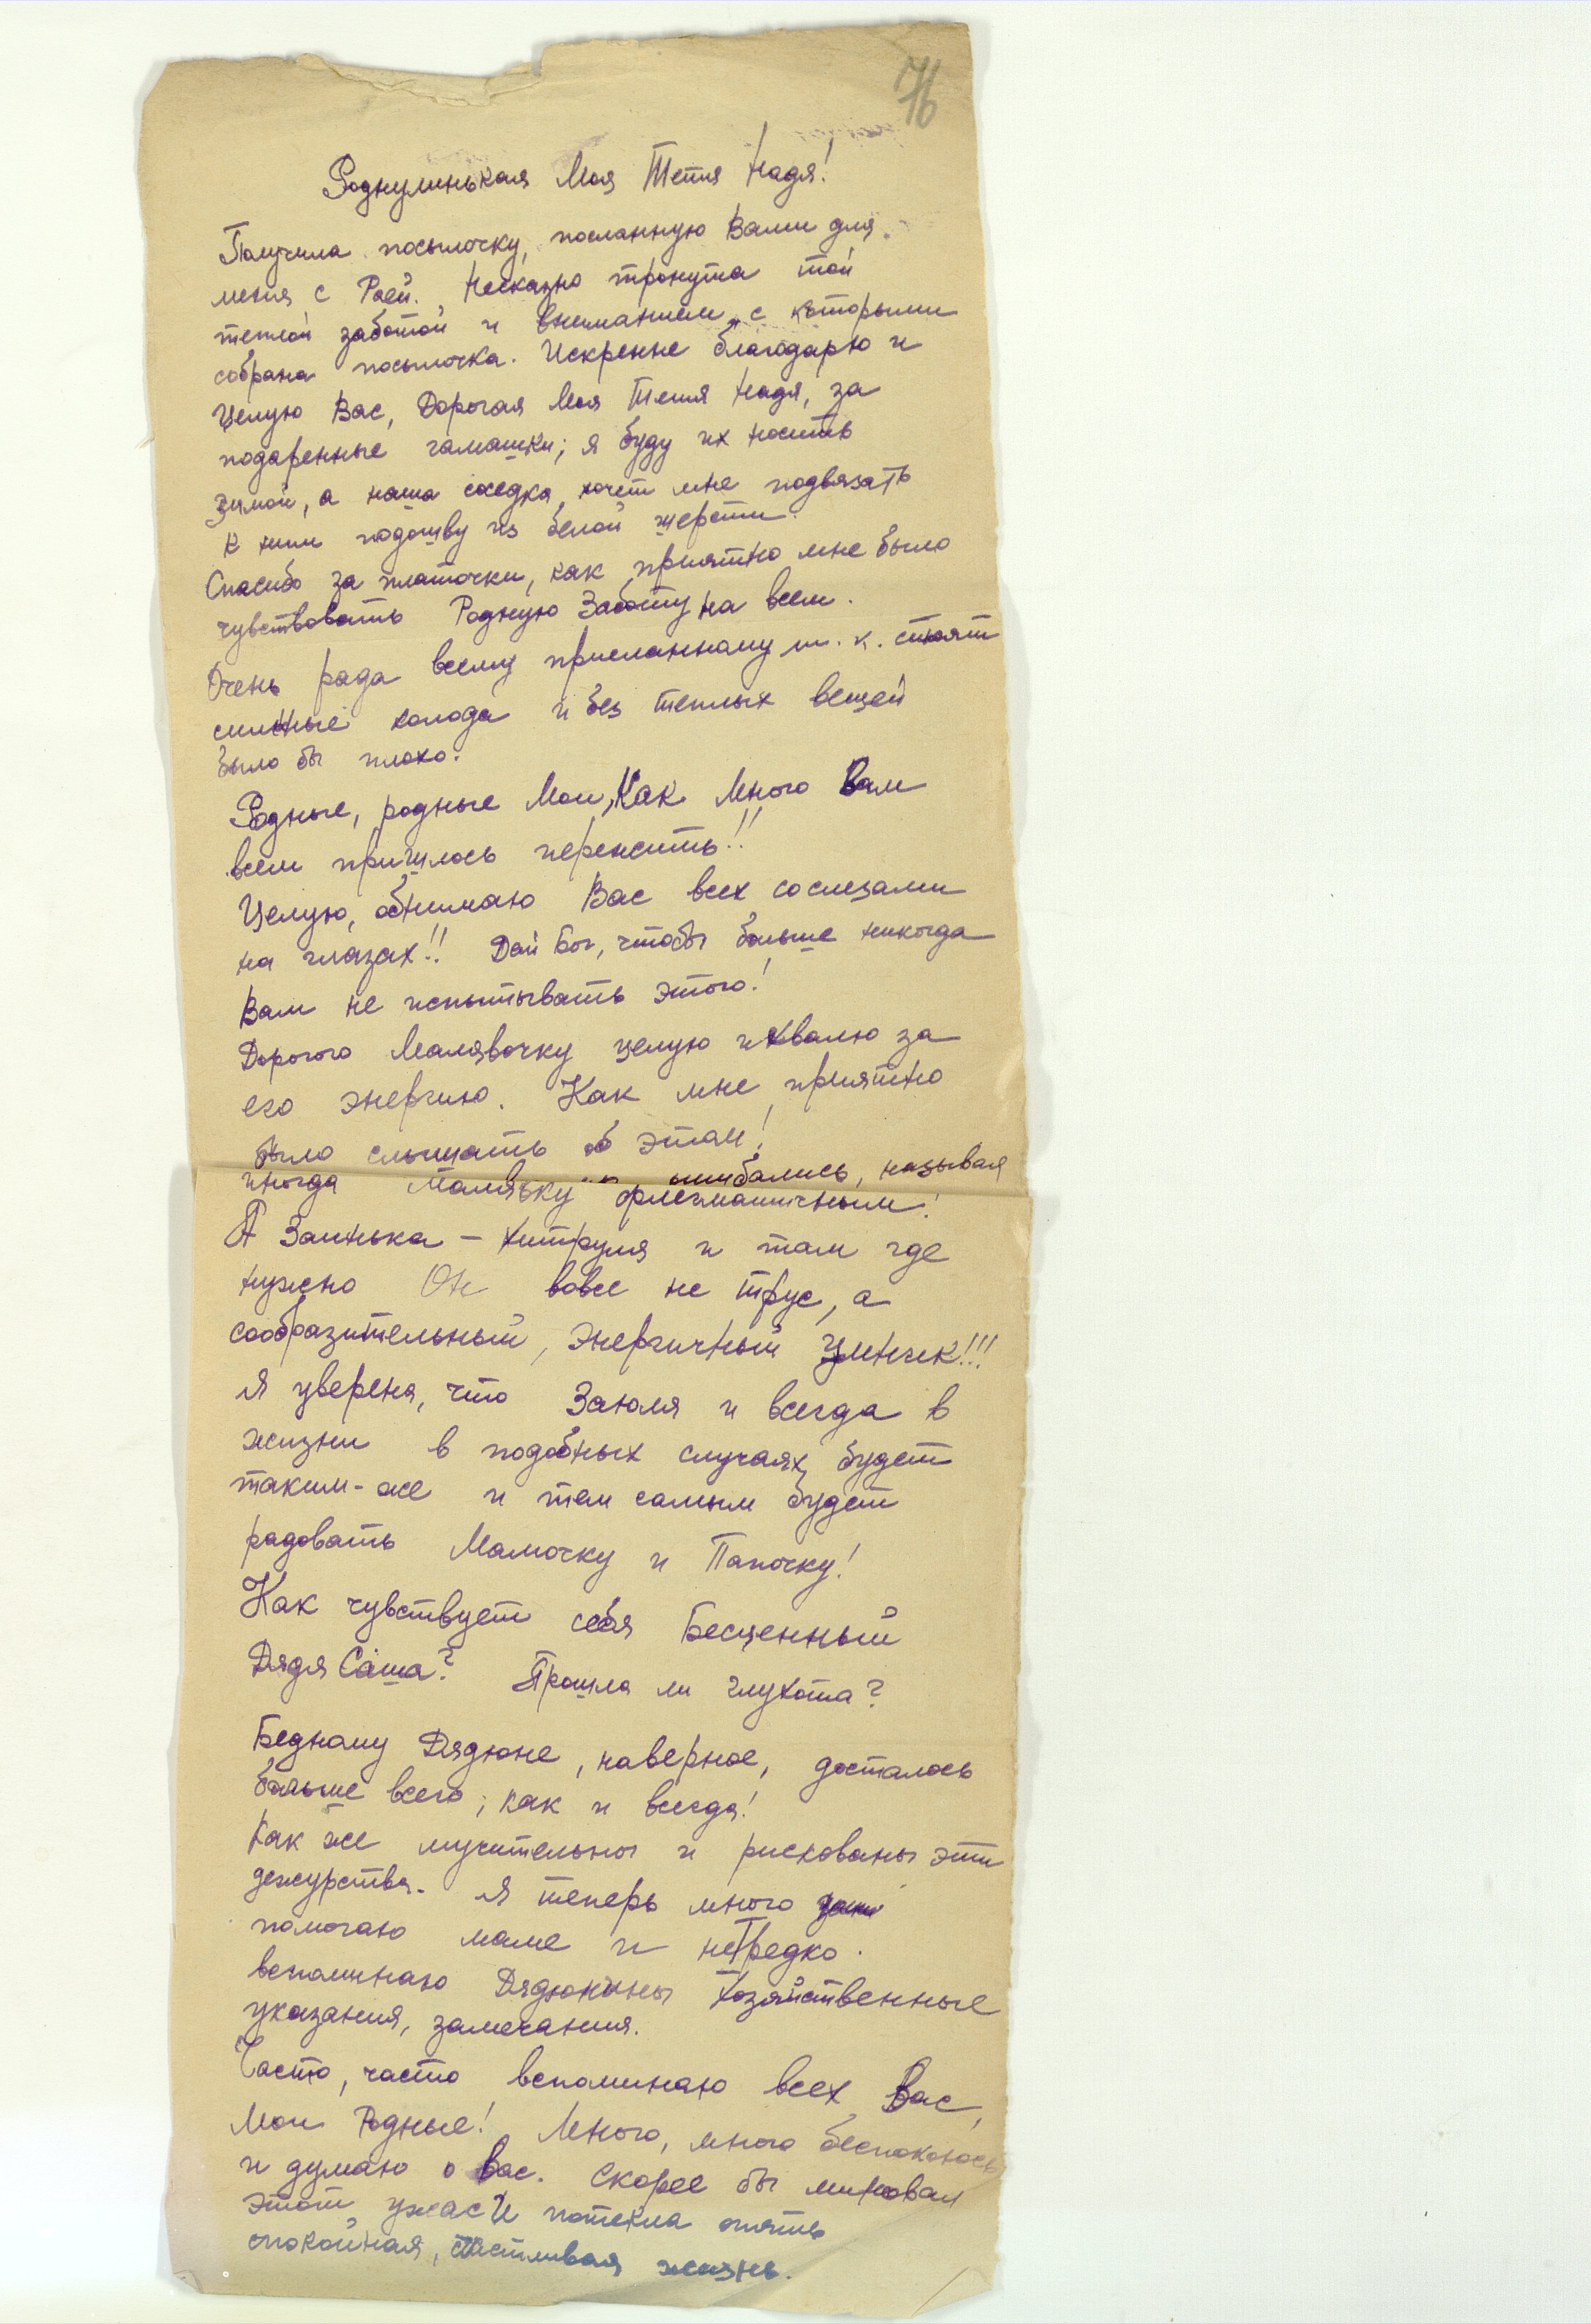 76
Роднулинькая Моя Тетя Надя!
Получила посылочку, посланную Вами для
меня с Раей. Несказно тронута той
теплой заботой и вниманием, с которыми
собрана посылочка. Искренне благодарю и
Целую Вас, Дорогая Моя Тетя Надя, за
подаренные гамашки; я буду их носить
зимой, а наша соседка хочет мне подвязать
к ним подошву из белой шерсти.
Спасибо за платочки, как приятно мне было
чувствовать Родную Заботу на всем.
Очень рада всему присланному т. к. стоят
сильные холода и без теплых вещей
было бы плохо.
Родные, родные Мои, Как Много Вам
всем пришлось пережить!!
Целую, обнимаю Вас всех со слезами
на глазах!! Дай Бог, чтобы больше никогда
Вам не испытывать этого!
Дорогого Малявочку целую и хвалю за
его энергию. Как мне приятно
было слышать об этом!
иногда Малявку ошибались, называя
флегматичным!
А Заинька – хитруля и там где
нужно Он вовсе не трус, а
сообразительный, энергичный Умник!!!
Я уверена, что Заюля и всегда в
жизни в подобных случаях будет
таким-же и тем самым будет
радовать Мамочку и Папочку!
Как чувствует себя Бесценный
Дядя Саша? Прошла ли глухота?
Бедному Дядюне, наверное, досталось
больше всего, как и всегда!
Как же мучительны и рискованы эти
дежурства. Я теперь много
помогаю маме и нередко
вспоминаю Дядюнины Хозяйственные
указания, замечания.
Часто, часто вспоминаю всех Вас,
Мои Родные! Много, много беспокоюсь
и думаю о Вас. Скорее бы миновал
этот ужас И потекла опять
спокойная, счастливая жизнь.